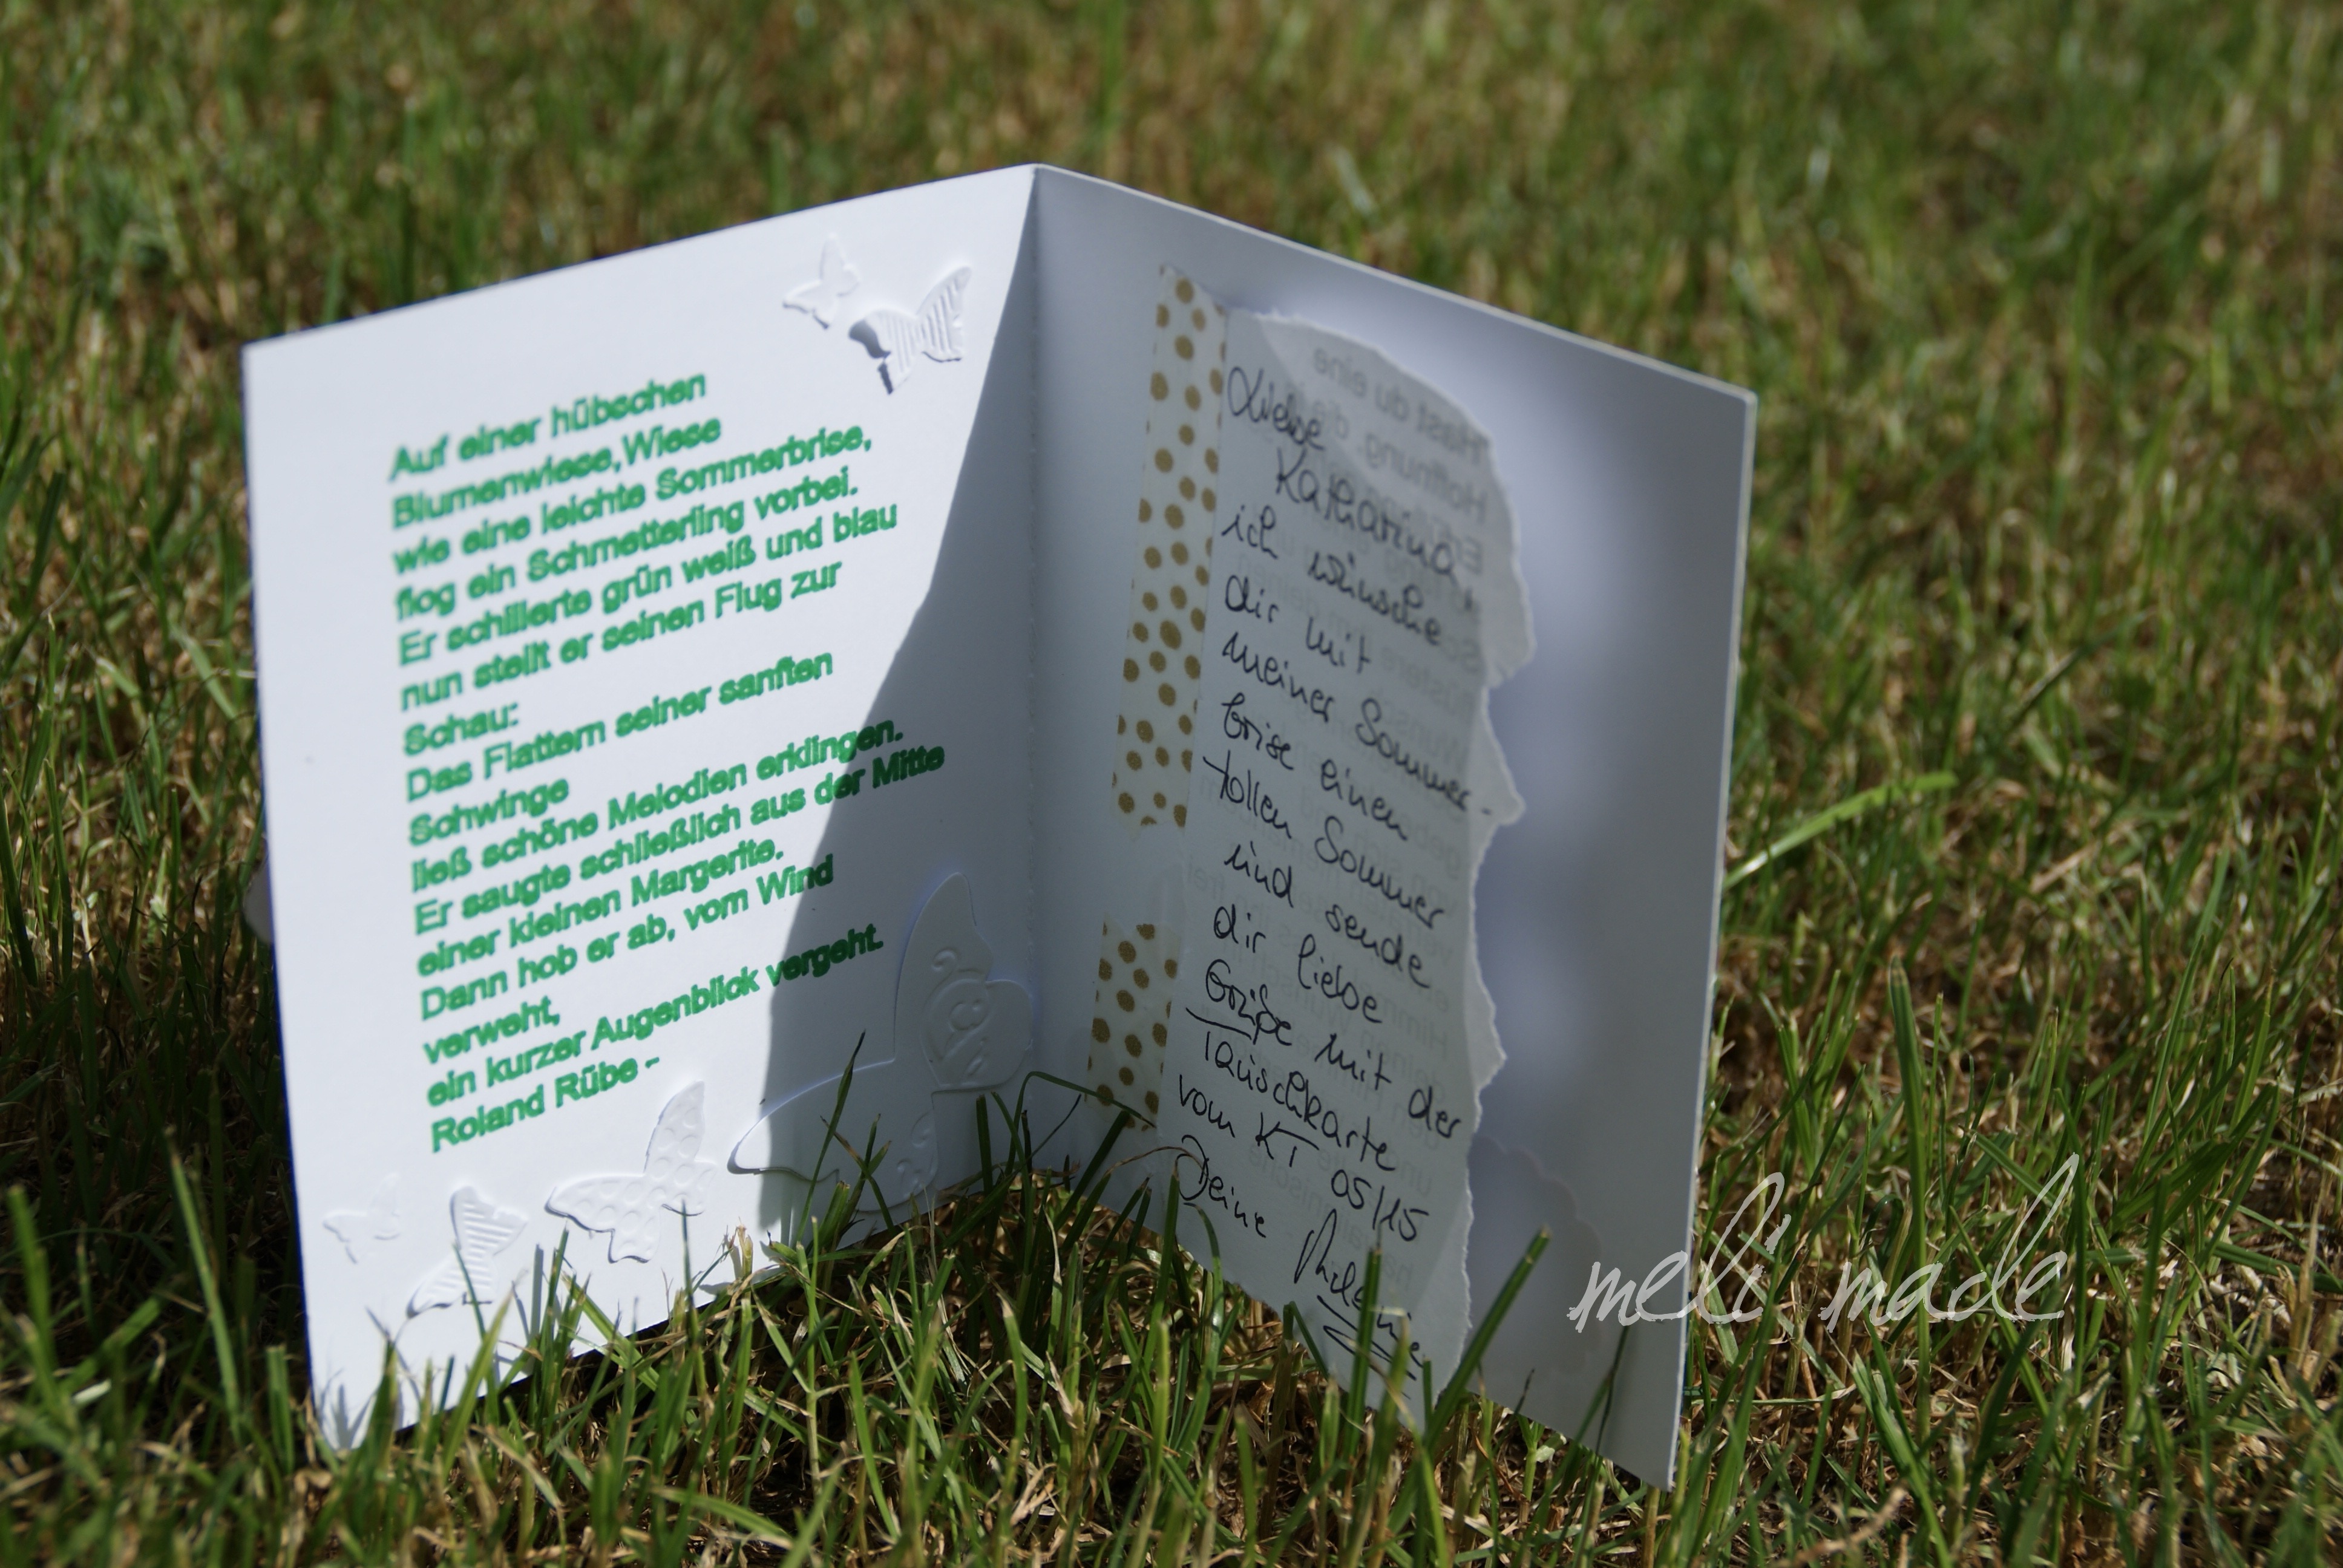 Auf einer hübschen
Blumenwiese,Wiese
wie eine leichte Sommerbrise,
flog ein Schmetterling vorbei.
Er schillerte grün weiß und blau
nun stellt er seinen Flug zur
Schau:
Das Flattern seiner sanften
Schwinge
ließ schöne Melodien erklingen.
Er saugte schließlich aus der Mitte
einer kleinen Margerite.
Dann hob er ab, vom Wind
verweht,
ein kurzer Augenblick vergeht.
Roland Rübe -
Liebe
Katharina
ich wünsche
dir mit
meiner Sommer-
brise einen
tollen Sommer
und sende
dir liebe
Grüße mit der
Tauschkarte
vom KT 05/15
Deine Melanie
Hast du eine
Hoffnung, die
meli made